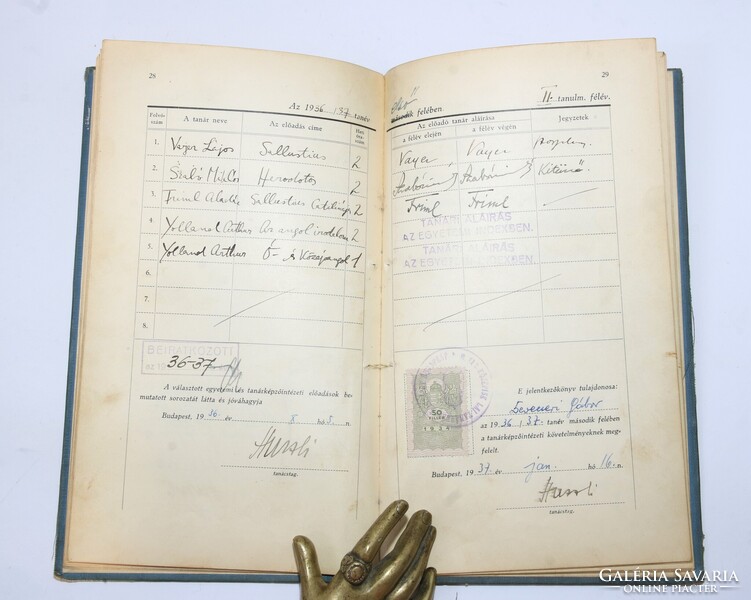 26
Az 1936/37 tanév
Folyószám
A tanár neve
Az előadás címe
1. Vayer Lajos Sallustius 2
2. Szabó Miklós Herodotos 2
3. Friml Aladár Sallustius Catilinája 2
4. Yolland Arthur Az angol irodalom 2
5. Yolland Arthur Ó- és Középangol 1
6.
7.
8.
BEIRATKOZOTT
az 1936-37
A választott egyetemi és tanárképzőintézeti előadások be
mutatott sorozatát látta és jóváhagyja
Budapest, 1936. év 8 hó 5. n.
tanácstag.
29
első felében.
II. tanulm. félév.
Az előadó tanár aláírása
Jegyzetek
a félév elején
a félév végén
Vayer Vayer
Kitünő
Friml Friml
TANÁRI ALÁIRÁS
AZ EGYETEMI INDEXBEN.
TANÁRI ALÁIRÁS
AZ EGYETEMI INDEXBEN.
50
FILLÉR
1934
E jelentkezőkönyv tulajdonosa:
Devecseri Gábor
az 1936/37. tanév második felében
a tanárképzőintézeti követelményeknek meg-
felelt.
Budapest, 1937. jan. hó 16.-n.
tanácstag.
GALÉRIA SAVARIA
ONLINE PIACTÉR